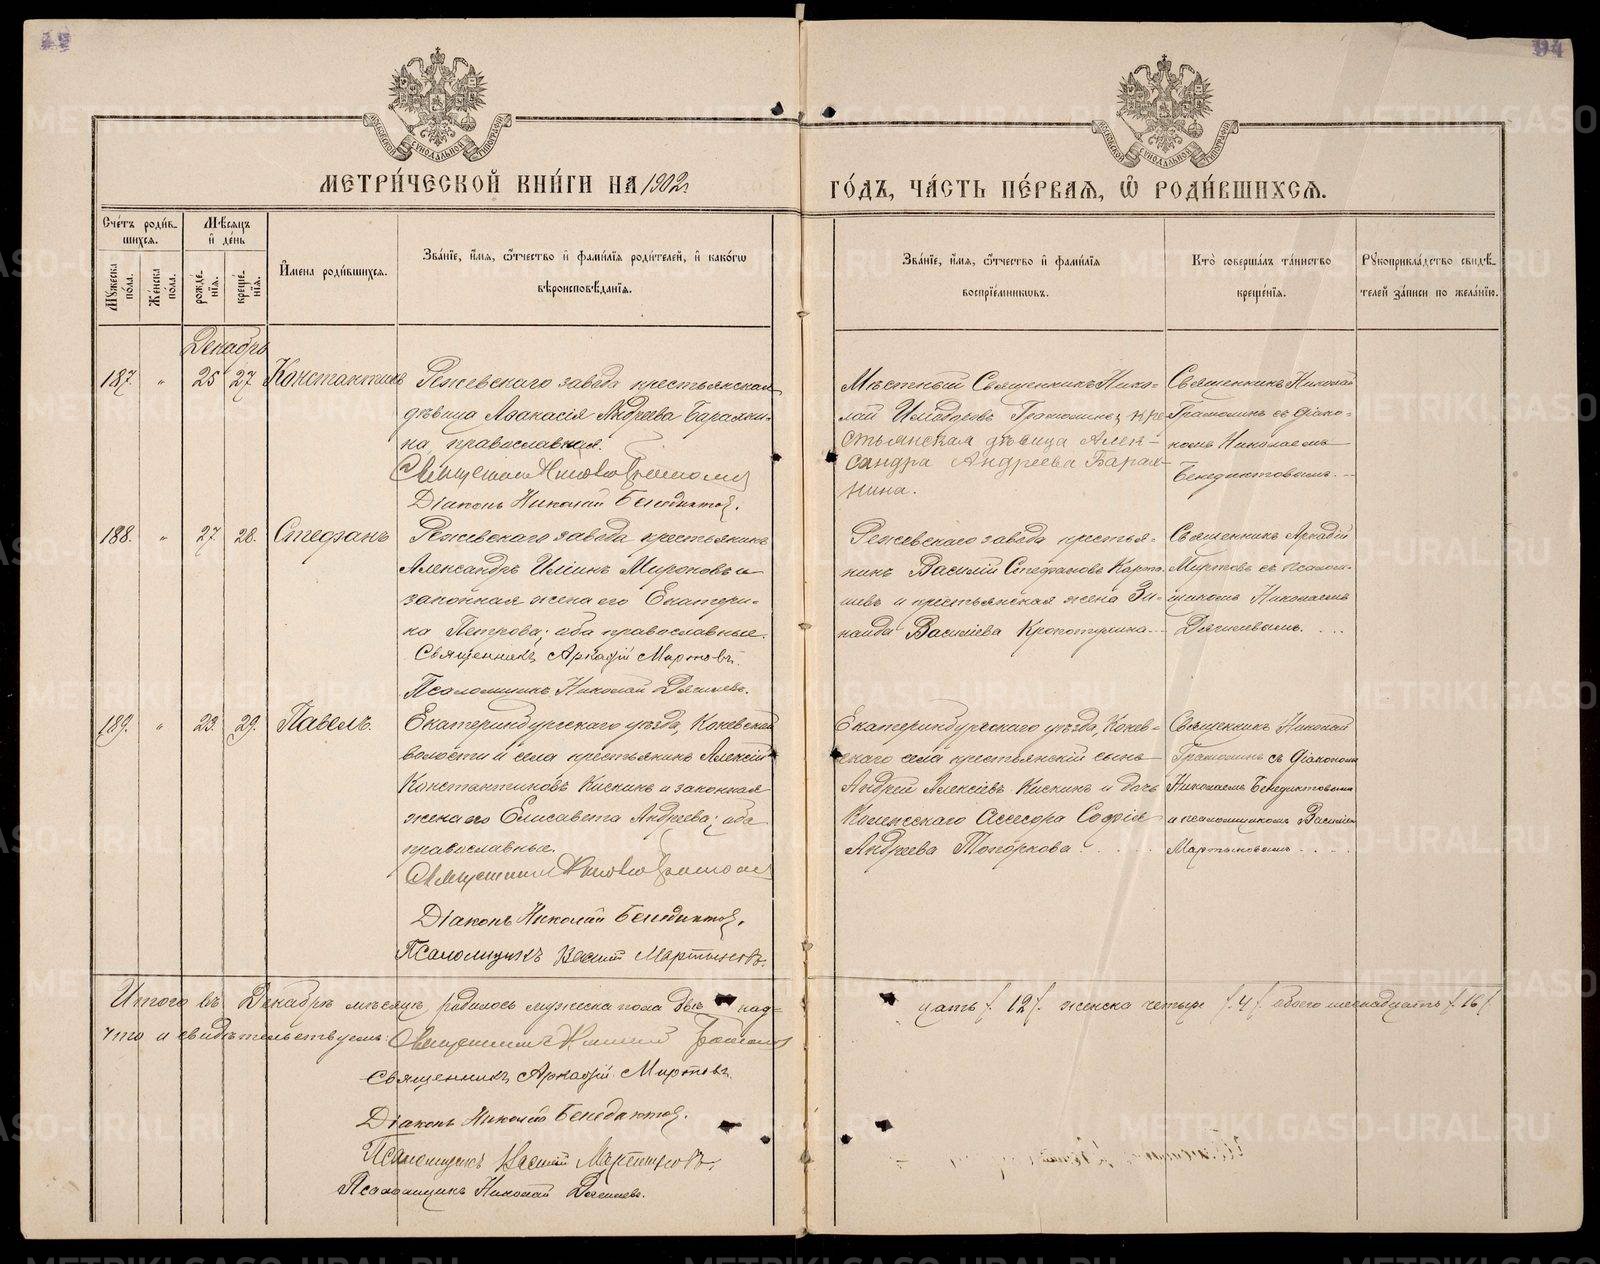 94
МОСКОВСКОЙ СѴНОДАЛЬНОЙ ТИПОГРАФІИ
МОСКОВСКОЙ СѴНОДАЛЬНОЙ ТИПОГРАФІИ
МЕТРИ́ЧЕСКОЙ КНИ́ГИ НА 1902 г.
ГО́ДЪ, ЧА́СТЬ ПЕ́РВАЯ, Ѽ РОДИ́ВШИХСЯ.
Сче́тъ роди́в-
шихся.
Мѣ́сяцъ
и҆ де́нь
Му́жеска по́ла.
Же́нска по́ла.
рожде́нїя.
креще́нїя.
И҆мена роди́вшихся.
Зва́нїе, и҆́мя, ѻ҆́тчество и҆ фами́лїя роди́телей, и҆ како́гѡ
вѣроисповѣ́данїя.
Зва́нїе, и҆́мя, ѻ҆́тчество и҆ фами́лїя
воспрїе́мникѡвъ.
Кто̀ соверша́лъ та́инство
креще́нїя.
Рукоприкла́дство свидѣ́-
телей за́писи по жела́нїю.
Декабрь
187. " 25 27 Константинъ
Режевскаго завода крестьянская
дѣвица Аѳанасія Андреева Барахни-
на православная.
Священникъ Николай Грамолинъ
Діаконъ Николай Бенедиктовъ.
Мѣстный Священникъ Нико-
лай Грамолинъ и кре-
стьянская дѣвица Алек-
сандра Андреева Барах-
нина.
Священникъ Николай
Грамолинъ съ діако-
номъ Николаемъ
Бенедиктовымъ.
188. " 27 28. Стефанъ
Режевскаго завода крестьянинъ
Александръ Иліинъ Мироновъ и
законная жена его Екатери-
на Петрова; оба православные.
Священникъ Аркадій Миртовъ.
Псаломщикъ Николай Дягилевъ.
Режевскаго завода крестья-
нинъ Василій Стефановъ Карто-
шевъ и крестьянская жена Зи-
наида Василіева Крохотулина
Священникъ Аркадій
Миртовъ съ псалом-
щикомъ Николаемъ
Дягилевымъ.
189. " 23. 29. Павелъ.
Екатеринбургскаго уѣзда, Коневской
волости и села крестьянинъ Алексій
Константиновъ Кискинъ и законная
жена его Елисавета Андреева; оба
православные.
Священникъ Николай Грамолинъ
Діаконъ Николай Бенедиктовъ.
Псаломщикъ Василій Мартыновъ.
Екатеринбургскаго уѣзда, Конев-
скаго села крестьянскій сынъ
Андрей Алексіевъ Кискинъ и дочь
Коллежскаго Ассесора Софія
Андреева Топоркова.
Священникъ Николай
Грамолинъ съ діакономъ
Николаемъ Бенедиктовымъ
и псаломщикомъ Василіемъ
Мартыновымъ
Итого въ Декабрѣ мѣсяцѣ родилось мужеска пола двѣнад-
цать /. 12 /. женска четыре /. 4 /. обоего шестнадцать /. 16 /.
что и свидѣтельствуемъ: Священникъ Николай Грамолинъ
Священникъ Аркадій Миртовъ.
Діаконъ Николай Бенедиктовъ.
Псаломщикъ Василій Мартыновъ.
Псаломщикъ Николай Дягилевъ.
METRIKI.GASO-URAL.RU